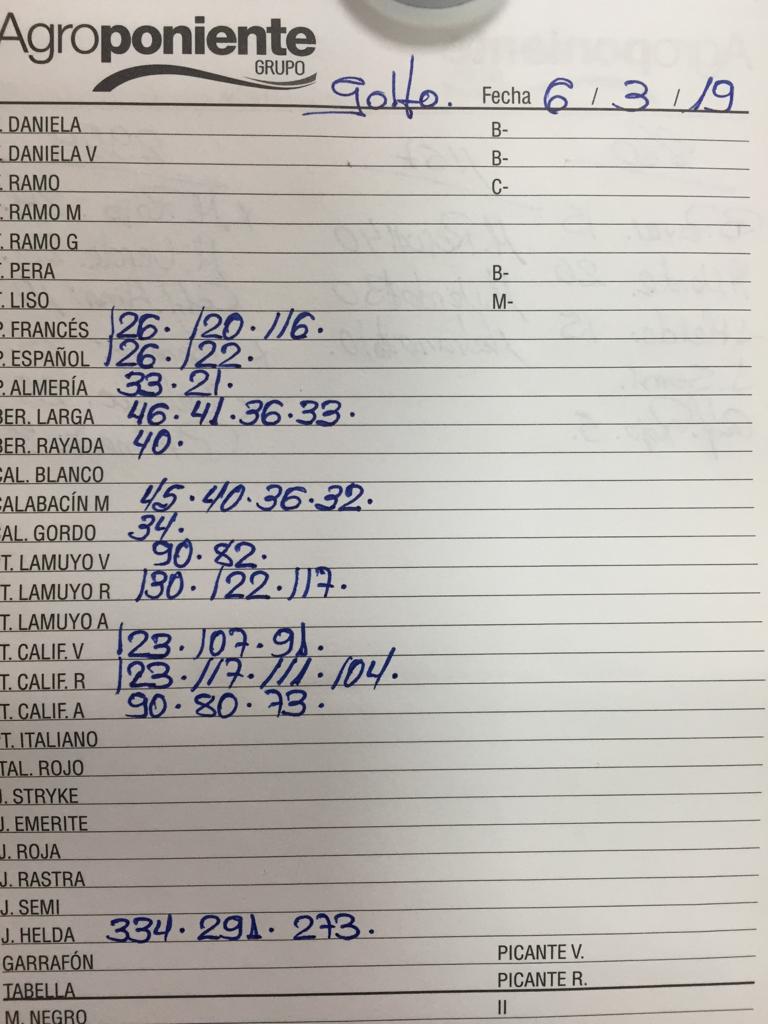 Agroponiente
GRUPO
Golfo. Fecha 6 / 3 / 19
. DANIELA B-
. DANIELA V B-
. RAMO C-
. RAMO M
. RAMO G
. PERA B-
. LISO M-
P. FRANCÉS 126. 120. 116.
P. ESPAÑOL 126. 122.
P. ALMERÍA 33. 21.
BER. LARGA 46. 41. 36. 33.
BER. RAYADA 40.
CAL. BLANCO
CALABACÍN M 45. 40. 36. 32.
CAL. GORDO 34.
T. LAMUYO V 90. 82.
T. LAMUYO R 130. 122. 117.
T. LAMUYO A
T. CALIF. V 123. 107. 91.
T. CALIF. R 123. 117. 111. 104.
T. CALIF. A 90. 80. 73.
T. ITALIANO
TAL. ROJO
J. STRYKE
J. EMERITE
J. ROJA
J. RASTRA
J. SEMI
J. HELDA 334. 291. 273.
GARRAFÓN PICANTE V.
TABELLA PICANTE R.
M. NEGRO II